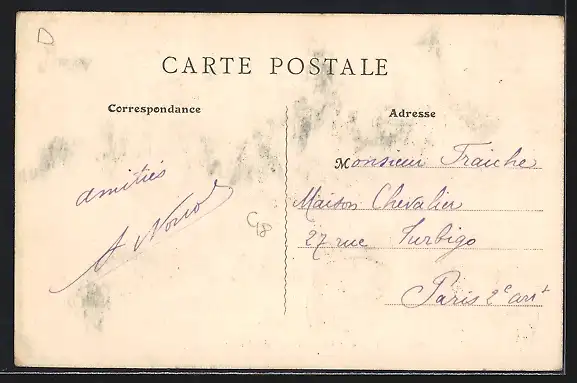 D
CARTE POSTALE
Correspondance
Adresse
amitiés
A
G8
Monsieur Traiche
Maison Chevalier
27 rue Turbigo
Paris 2e arrt